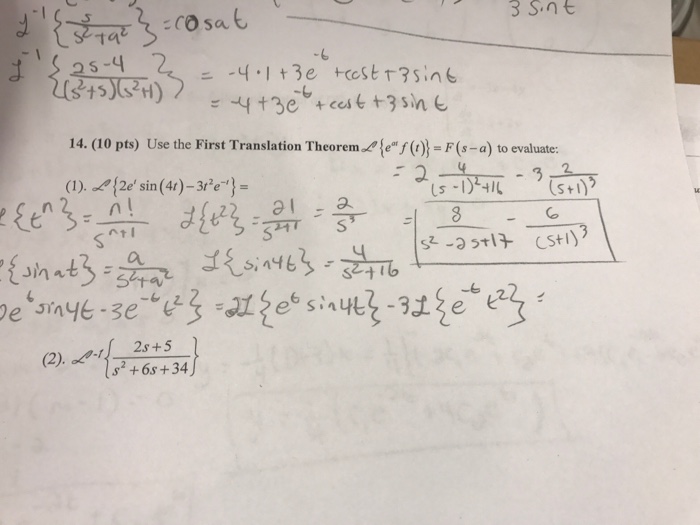 3 sint
ℒ⁻¹{s/(s²+a²)} = cosat
ℒ⁻¹{(2s-4)/((s²+s)(s²+1))} = -4·1+3e⁻ᵗ+cost+3sint
= -4+3e⁻ᵗ+cost+3sint
14. (10 pts) Use the First Translation Theorem ℒ{eᵃᵗ f(t)} = F(s-a) to evaluate:
(1). ℒ{2eᵗ sin(4t) - 3t²e⁻ᵗ} = = 2 4/((s-1)²+16) - 3 2/(s+1)³
ℒ{tⁿ} = n!/sⁿ⁺¹ ℒ{t²} = 2!/s²⁺¹ = 2/s³ = 8/(s²-2s+17) - 6/(s+1)³
{sinat} = a/(s²+a²) ℒ{sin4t} = 4/(s²+16)
2eᵗsin4t-3e⁻ᵗt²} = 2ℒ{eᵗ sin4t} - 3ℒ{e⁻ᵗ t²} =
(2). ℒ⁻¹{(2s+5)/(s²+6s+34)}